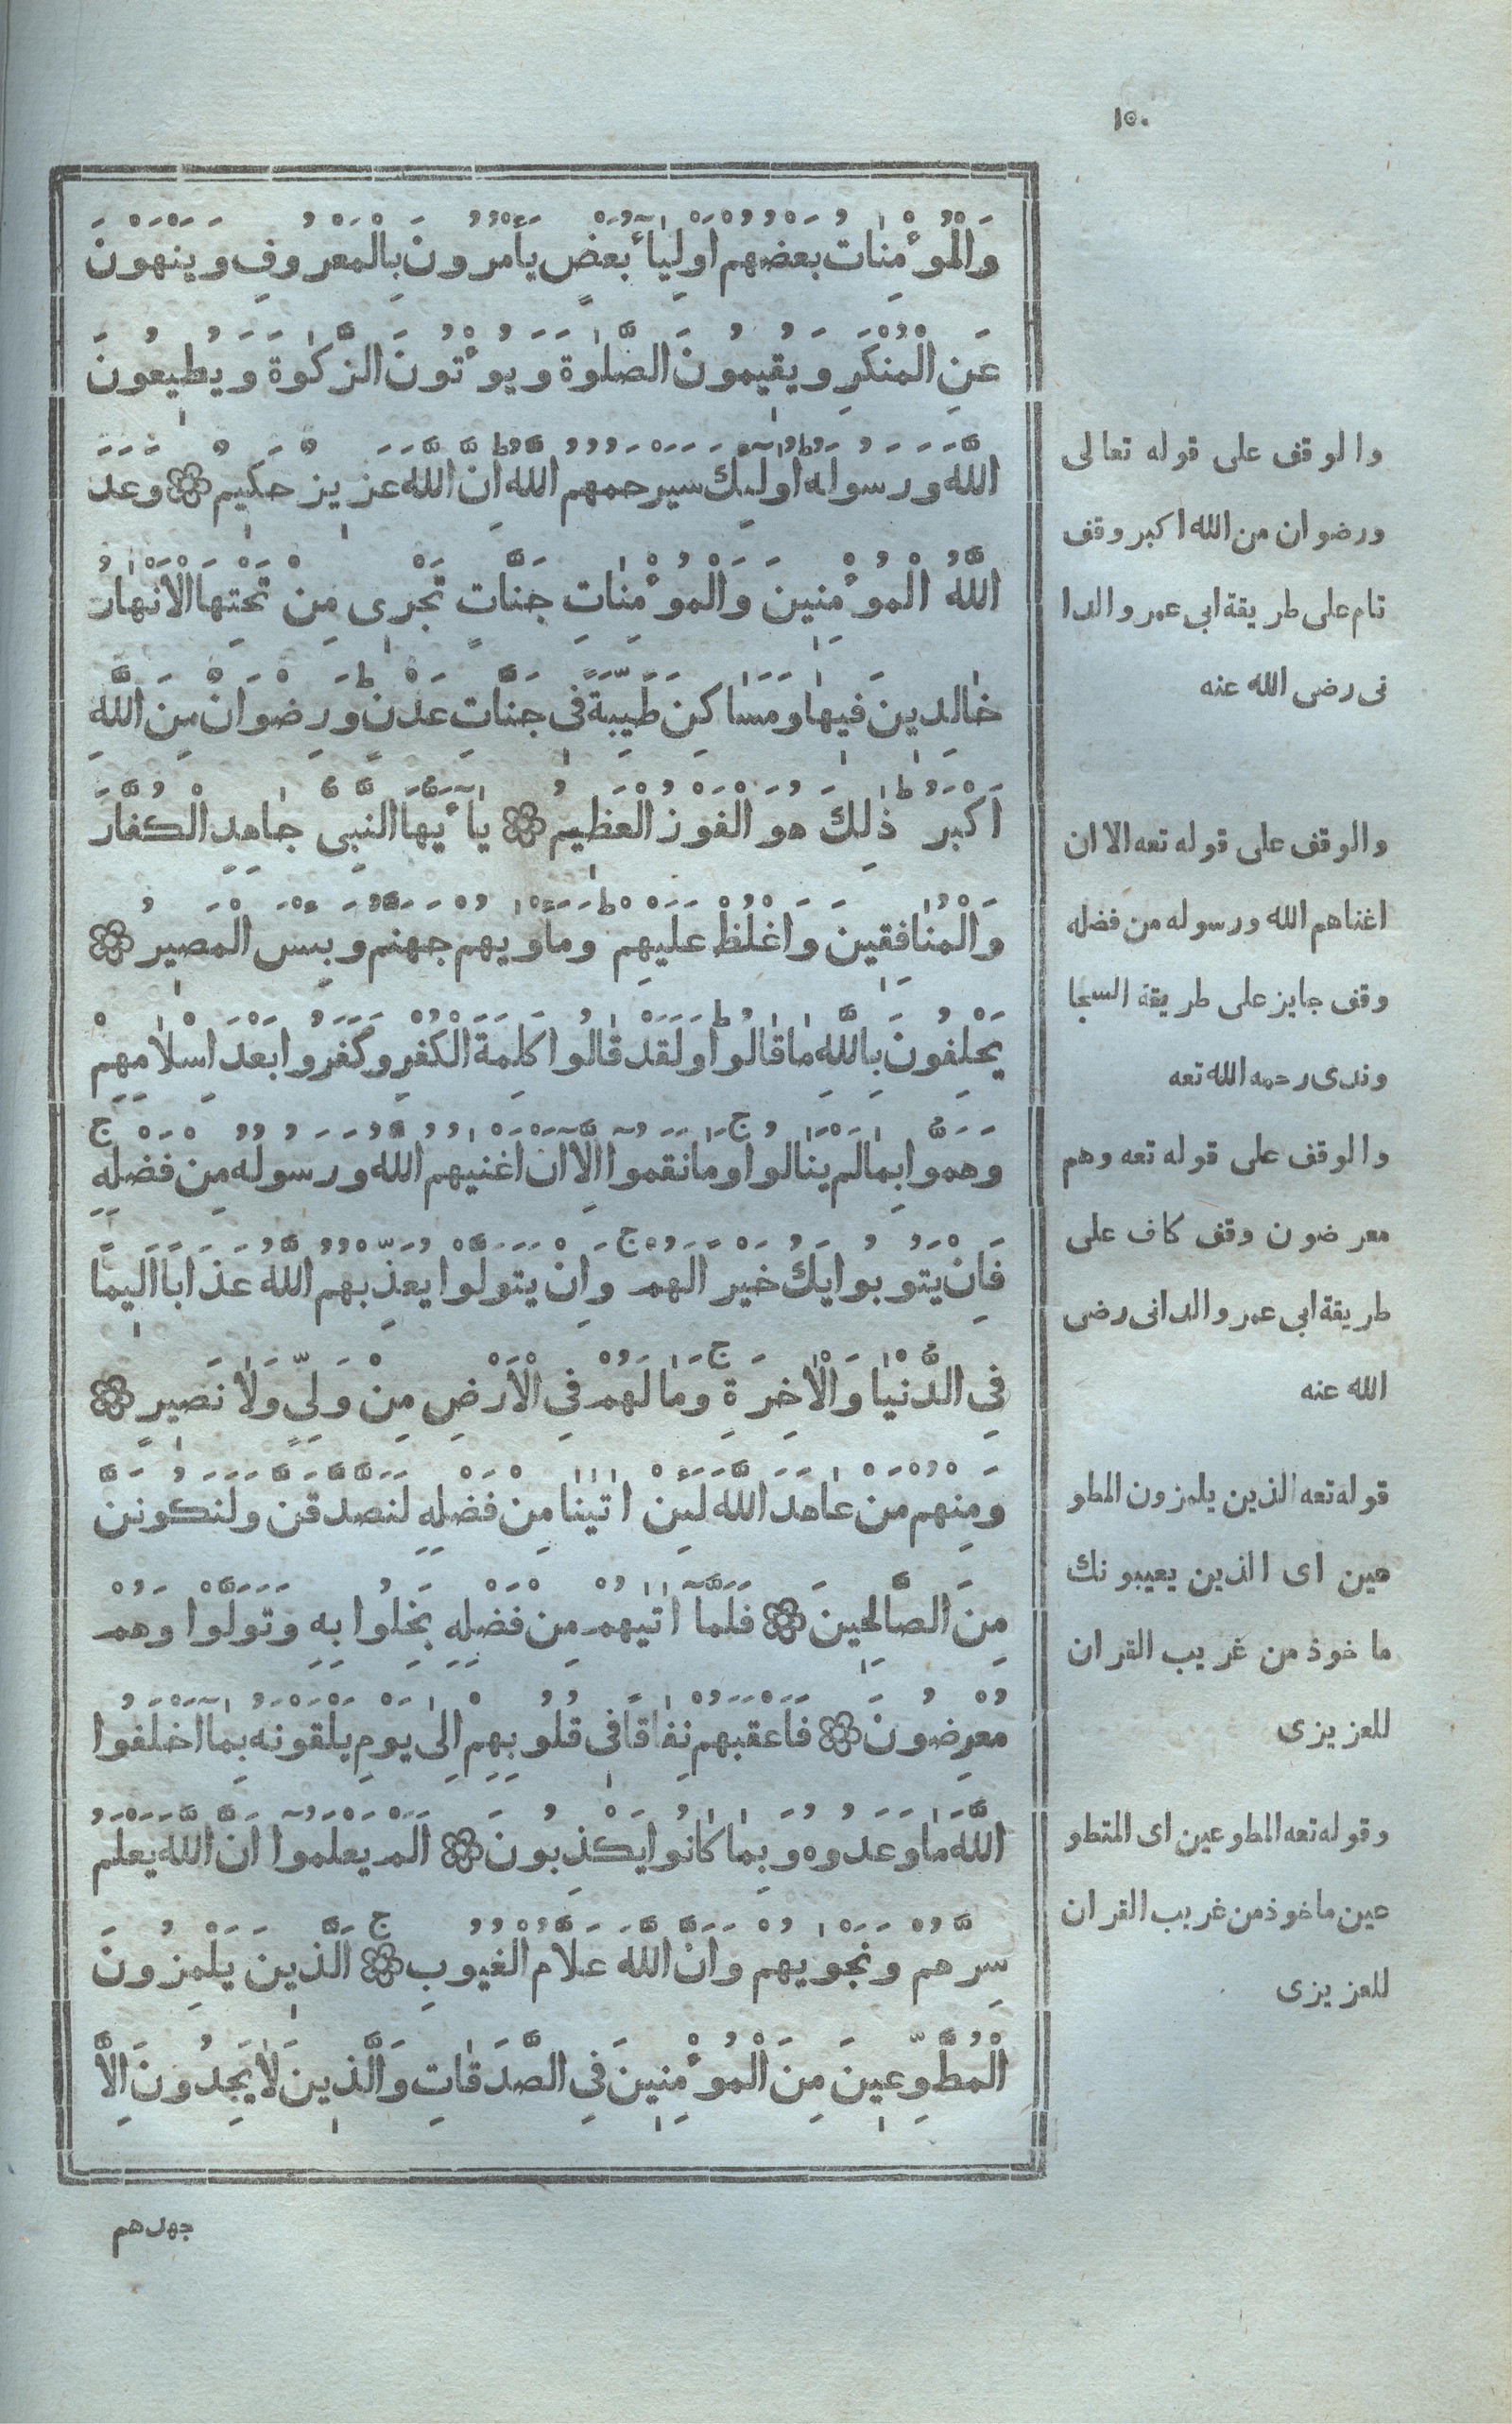 ١٥٠
وَالْمُؤْمِنَاتُ بَعْضُهُمْ اَوْلِيَاۤءُ بَعْضٍ يَأْمُرُونَ بِالْمَعْرُوفِ وَيَنْهَوْنَ
عَنِ الْمُنْكَرِ وَيُقِيمُونَ الصَّلٰوةَ وَيُؤْتُونَ الزَّكٰوةَ وَيُطِيعُونَ
اللّٰهَ وَرَسُولَهُ ط اُولٰۤئِكَ سَيَرْحَمُهُمُ اللّٰهُ ط اِنَّ اللّٰهَ عَزِيزٌ حَكِيمٌ ۞ وَعَدَ
اللّٰهُ الْمُؤْمِنِينَ وَالْمُؤْمِنَاتِ جَنَّاتٍ تَجْرِى مِنْ تَحْتِهَا الْاَنْهَارُ
خَالِدِينَ فِيهَا وَمَسَاكِنَ طَيِّبَةً فِى جَنَّاتِ عَدْنٍ ط وَرِضْوَانٌ مِنَ اللّٰهِ
اَكْبَرُ ط ذٰلِكَ هُوَ الْفَوْزُ الْعَظِيمُ ۞ يَاۤ اَيُّهَا النَّبِىُّ جَاهِدِ الْكُفَّارَ
وَالْمُنَافِقِينَ وَاغْلُظْ عَلَيْهِمْ ط وَمَأْوٰيهُمْ جَهَنَّمُ وَبِئْسَ الْمَصِيرُ ۞
يَحْلِفُونَ بِاللّٰهِ مَا قَالُوا ط وَلَقَدْ قَالُوا كَلِمَةَ الْكُفْرِ وَكَفَرُوا بَعْدَ اِسْلَامِهِمْ
وَهَمُّوا بِمَا لَمْ يَنَالُوا ج وَمَا نَقَمُوۤا اِلَّاۤ اَنْ اَغْنٰيهُمُ اللّٰهُ وَرَسُولُهُ مِنْ فَضْلِهِ ج
فَاِنْ يَتُوبُوا يَكُ خَيْرًا لَهُمْ ج وَاِنْ يَتَوَلَّوْا يُعَذِّبْهُمُ اللّٰهُ عَذَابًا اَلِيمًا
فِى الدُّنْيَا وَالْاٰخِرَةِ ج وَمَا لَهُمْ فِى الْاَرْضِ مِنْ وَلِىٍّ وَلَا نَصِيرٍ ۞
وَمِنْهُمْ مَنْ عَاهَدَ اللّٰهَ لَئِنْ اٰتٰينَا مِنْ فَضْلِهِ لَنَصَّدَّقَنَّ وَلَنَكُونَنَّ
مِنَ الصَّالِحِينَ ۞ فَلَمَّاۤ اٰتٰيهُمْ مِنْ فَضْلِهِ بَخِلُوا بِهِ وَتَوَلَّوْا وَهُمْ
مُعْرِضُونَ ۞ فَاَعْقَبَهُمْ نِفَاقًا فِى قُلُوبِهِمْ اِلٰى يَوْمِ يَلْقَوْنَهُ بِمَاۤ اَخْلَفُوا
اللّٰهَ مَا وَعَدُوهُ وَبِمَا كَانُوا يَكْذِبُونَ ۞ اَلَمْ يَعْلَمُوۤا اَنَّ اللّٰهَ يَعْلَمُ
سِرَّهُمْ وَنَجْوٰيهُمْ وَاَنَّ اللّٰهَ عَلَّامُ الْغُيُوبِ ج ۞ اَلَّذِينَ يَلْمِزُونَ
الْمُطَّوِّعِينَ مِنَ الْمُؤْمِنِينَ فِى الصَّدَقَاتِ وَالَّذِينَ لَا يَجِدُونَ اِلَّا
جهدهم
والوقف على قوله تعالى
ورضوان من الله اكبر وقف
تام على طريقة ابى عمرو الدا
نى رضى الله عنه
والوقف على قوله تعه الا ان
اغناهم الله ورسوله من فضله
وقف جايز على طريقة السجا
وندى رحمه الله تعه
والوقف على قوله تعه وهم
معرضون وقف كاف على
طريقة ابى عمرو الدانى رضى
الله عنه
قوله تعه الذين يلمزون المطو
عين اى الذين يعيبونك
ماخوذ من غريب القران
للعزيزى
وقوله تعه المطوعين اى المتطو
عين ماخوذ من غريب القران
للعزيزى